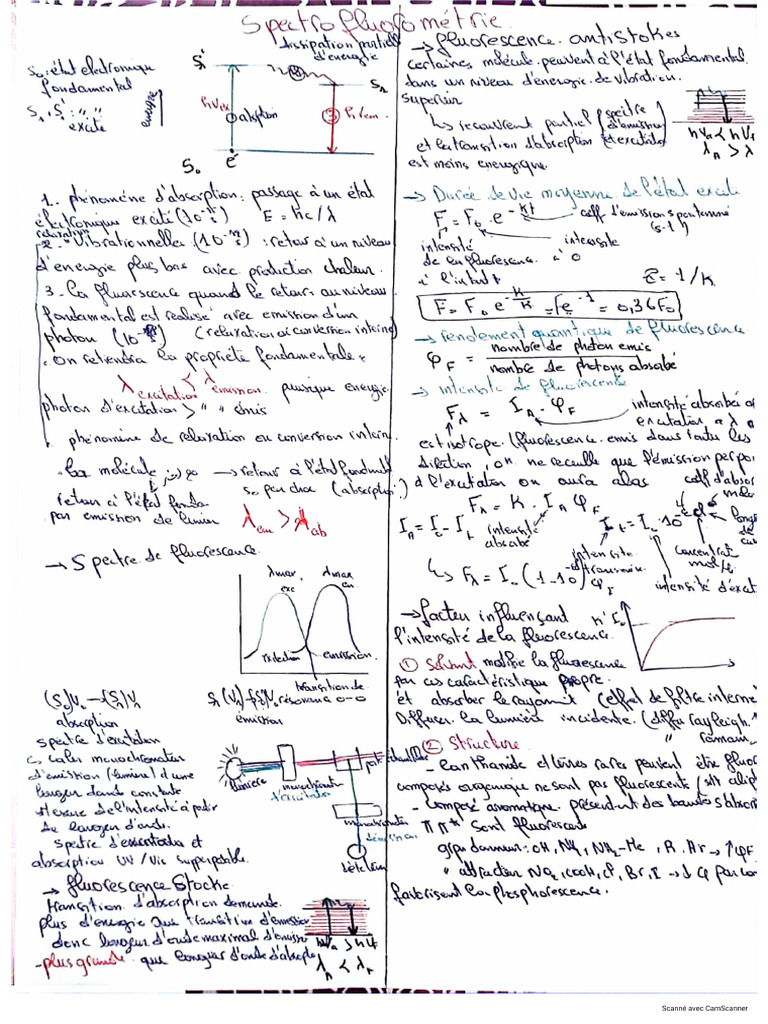 Spectrofluorométrie
S₀: état electronique
fondamental
S₁, S₁': " "
excité
énergie
S₁'
dissipation partielle
d'énergie
S₁
hνex
absption
hνem
S₀
e⁻
1.. phénoméne d'absorption: passage à un état
électronique excité (10⁻¹⁵) E = hc/λ
relaxation
2 - Vibrationnelles : retour à un niveau
d'énergie plus bas avec production chaleur.
3 - La fluorscence quand le retour au niveau
fondamental est realisé avec emission d'un
photon (relaxation ou conversion interne)
. On retiendra la propriété fondamentale :
λ excitation < λ emission. puisque energie
photon d'excitation > " " émis
. phénomine de relaxation ou conversion intern.
. La molécule → retour à l'état fondmntl
S₀ par choc (absorption)
retour à l'état fonda
par emission de lumier
λem > λab
→ Spectre de fluorescence.
λmax
exc
λmax
em
emission
transition de
résonance 0-0
(S₀)V₀ → (S₁)V₁
absorption
émission
spectre d'excitation
d'émission (lumiere) d'une
longeur d'onde constante
de l'intensité à partir
de longeur d'onde.
spectre d'excitation et
absorption UV / Vis superposable.
lumiere
monochromateur
d'excitation
monochromateur
d'émission
détecteur
→ fluorescence Stocke.
transition d'absorption demande
plus d'energie que transition d'emission
donc longeur d'onde maximal d'émission
-plus grande que longeur d'onde d'absorption
hνa > hνf
λA < λF
→ fluorescence. antiStokes
certaines molécule. peuvent à l'état fondamental.
dans un niveau d'énergie. de vibration.
superieur
↳ recouvrent partiel (spectre
d'émission
et d'excitation
et la transition d'absorption
est moins energique.
hνA < hνf
λA > λ
→ Durée de vie moyenne de l'état excité
F = F₀ . e⁻ᵏᵗ coeff d'emission spontanné
(s-1)
intensité
de la fluorescence.
à l'instant t
intensité
à 0
τ = 1/K
F = F₀ e^-K/K = F₀e⁻¹ = 0,36F₀
→ rendement quantique de fluorescence
φF = nombre de photon emis
nombre de photons absorbé
→ intensité de fluorescence
Fλ = IA . φF
intensité absorbée
excitation
est isotrope. (fluorescence. emis dans toutes les
direction, on ne recueille que l'émission perpo
à l'excitation on aura alors
Fλ = K . IA φF
coeff d'absor
IA = I₀ - It
intensité
absorbé
It = I₀ 10^-εcl
intensité
transmise
concentrat
mol/l
longe
de
cuv
intensité d'excit
↳ Fλ = I₀ (1-10^-εcl) φF
→ facteur influençant
l'intensité de la fluorescence.
① Solvant modifie la fluorescence
par ces caractéristique propre.
et absorber le rayonmt (effet de filtre interne
Diffuser la lumière incidente. (diffu rayleigh.
" ramam
② Structure
- Lanthanide et terres rares peuvent être fluor
composés organique ne sont pas fluorescents (sit alipt
- Composé aromatique. présentent des bandes d'absor
π π* sont fluorescents
grp donneur: OH, NH₂, NH₂-Me, R, Ar → ↑φF
" attracteur NO₂, COOH, Cl, Br, I → ↓φ
favorisent la phosphorescence.
Scanné avec CamScanner